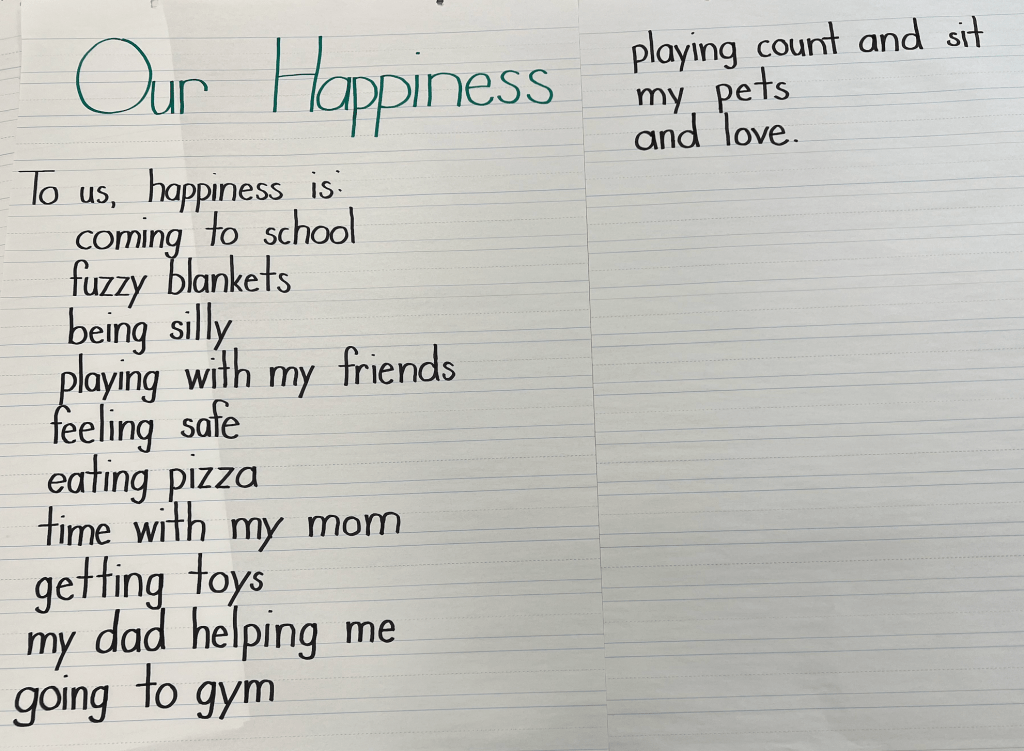 Our Happiness
To us, happiness is:
coming to school
fuzzy blankets
being silly
playing with my friends
feeling safe
eating pizza
time with my mom
getting toys
my dad helping me
going to gym
playing count and sit
my pets
and love.